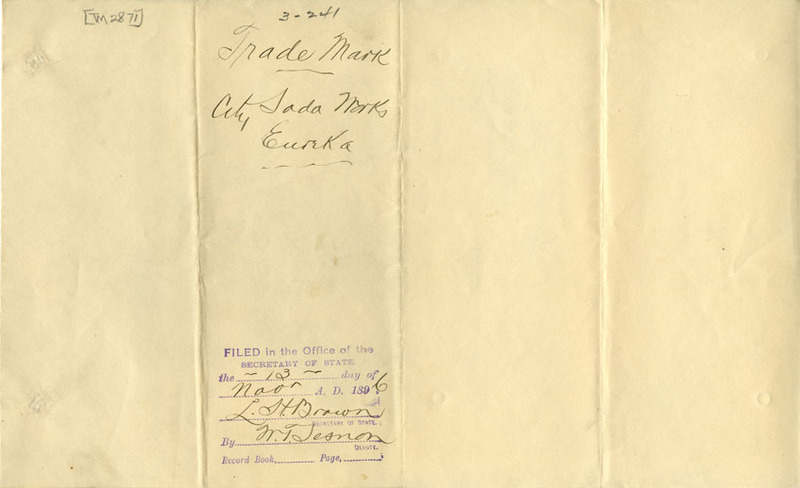 [TM 2871]
3-241
Trade Mark
City Soda Works
Eureka
FILED in the Office of the
SECRETARY OF STATE.
the ~ 13 ~ day of
Novr A. D. 1896
L. H. Brown
SECRETARY OF STATE.
By W. T. Sesnon
DEPUTY.
Record Book, Page,